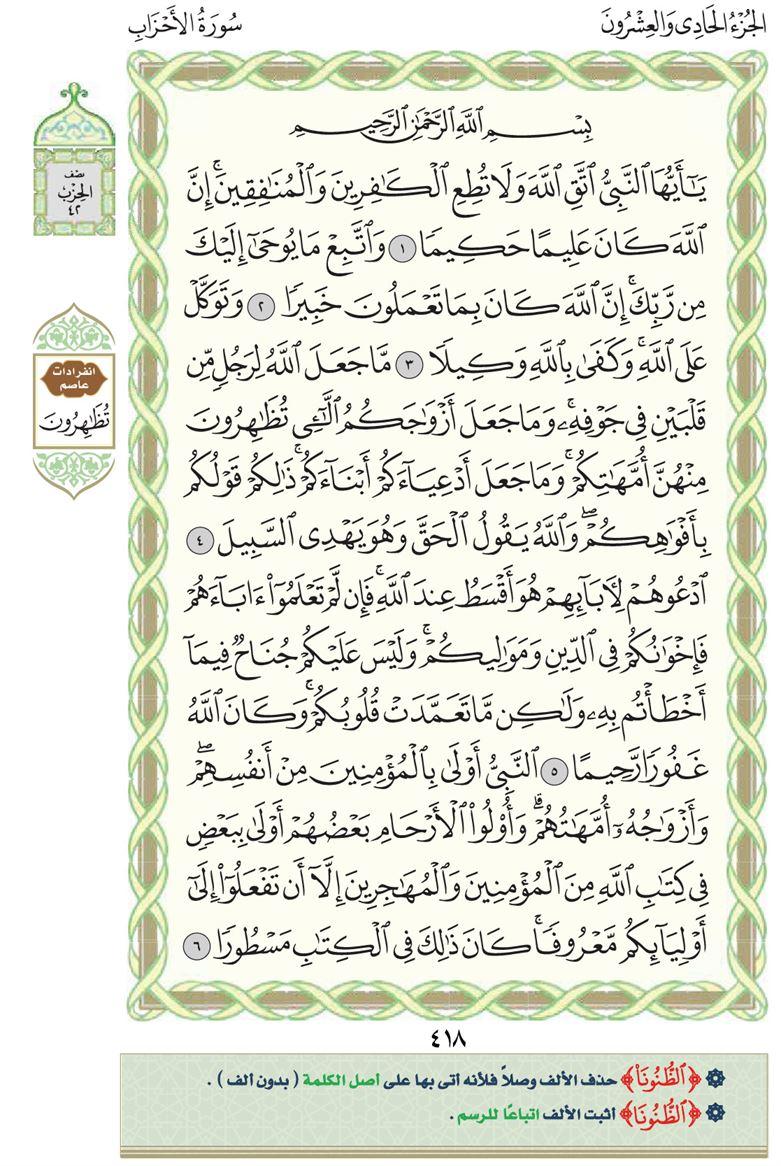 الجُزْءُ الحَادِي وَالعِشْرُونَ
سُورَةُ الأَحْزَابِ
نصف
الحِزْب
٤٢
انفرادات
عاصم
تُظَٰهِرُونَ
بِسْمِ ٱللَّهِ ٱلرَّحْمَٰنِ ٱلرَّحِيمِ
يَٰٓأَيُّهَا ٱلنَّبِيُّ ٱتَّقِ ٱللَّهَ وَلَا تُطِعِ ٱلْكَٰفِرِينَ وَٱلْمُنَٰفِقِينَۚ إِنَّ
ٱللَّهَ كَانَ عَلِيمًا حَكِيمًا ١ وَٱتَّبِعْ مَا يُوحَىٰٓ إِلَيْكَ
مِن رَّبِّكَۚ إِنَّ ٱللَّهَ كَانَ بِمَا تَعْمَلُونَ خَبِيرًا ٢ وَتَوَكَّلْ
عَلَى ٱللَّهِۚ وَكَفَىٰ بِٱللَّهِ وَكِيلًا ٣ مَّا جَعَلَ ٱللَّهُ لِرَجُلٍ مِّن
قَلْبَيْنِ فِي جَوْفِهِۦۚ وَمَا جَعَلَ أَزْوَٰجَكُمُ ٱلَّٰٓـِٔي تُظَٰهِرُونَ
مِنْهُنَّ أُمَّهَٰتِكُمْۚ وَمَا جَعَلَ أَدْعِيَآءَكُمْ أَبْنَآءَكُمْۚ ذَٰلِكُمْ قَوْلُكُم
بِأَفْوَٰهِكُمْۖ وَٱللَّهُ يَقُولُ ٱلْحَقَّ وَهُوَ يَهْدِي ٱلسَّبِيلَ ٤
ٱدْعُوهُمْ لِأٓبَآئِهِمْ هُوَ أَقْسَطُ عِندَ ٱللَّهِۚ فَإِن لَّمْ تَعْلَمُوٓا۟ ءَابَآءَهُمْ
فَإِخْوَٰنُكُمْ فِي ٱلدِّينِ وَمَوَٰلِيكُمْۚ وَلَيْسَ عَلَيْكُمْ جُنَاحٌ فِيمَآ
أَخْطَأْتُم بِهِۦ وَلَٰكِن مَّا تَعَمَّدَتْ قُلُوبُكُمْۚ وَكَانَ ٱللَّهُ
غَفُورًا رَّحِيمًا ٥ ٱلنَّبِيُّ أَوْلَىٰ بِٱلْمُؤْمِنِينَ مِنْ أَنفُسِهِمْۖ
وَأَزْوَٰجُهُۥٓ أُمَّهَٰتُهُمْۗ وَأُو۟لُوا۟ ٱلْأَرْحَامِ بَعْضُهُمْ أَوْلَىٰ بِبَعْضٍ
فِي كِتَٰبِ ٱللَّهِ مِنَ ٱلْمُؤْمِنِينَ وَٱلْمُهَٰجِرِينَ إِلَّآ أَن تَفْعَلُوٓا۟ إِلَىٰٓ
أَوْلِيَآئِكُم مَّعْرُوفًاۚ كَانَ ذَٰلِكَ فِي ٱلْكِتَٰبِ مَسْطُورًا ٦
٤١٨
﴿ٱلظُّنُونَا۠﴾ حذف الألف وصلاً فلأنه أتى بها على أصل الكلمة ( بدون ألف ) .
﴿ٱلظُّنُونَا﴾ أثبت الألف اتباعًا للرسم .